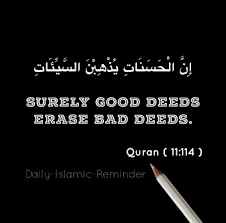 إِنَّ الْحَسَنَاتِ يُذْهِبْنَ السَّيِّئَاتِ
SURELY GOOD DEEDS
ERASE BAD DEEDS.
Quran ( 11:114 )
Daily-Islamic-Reminder